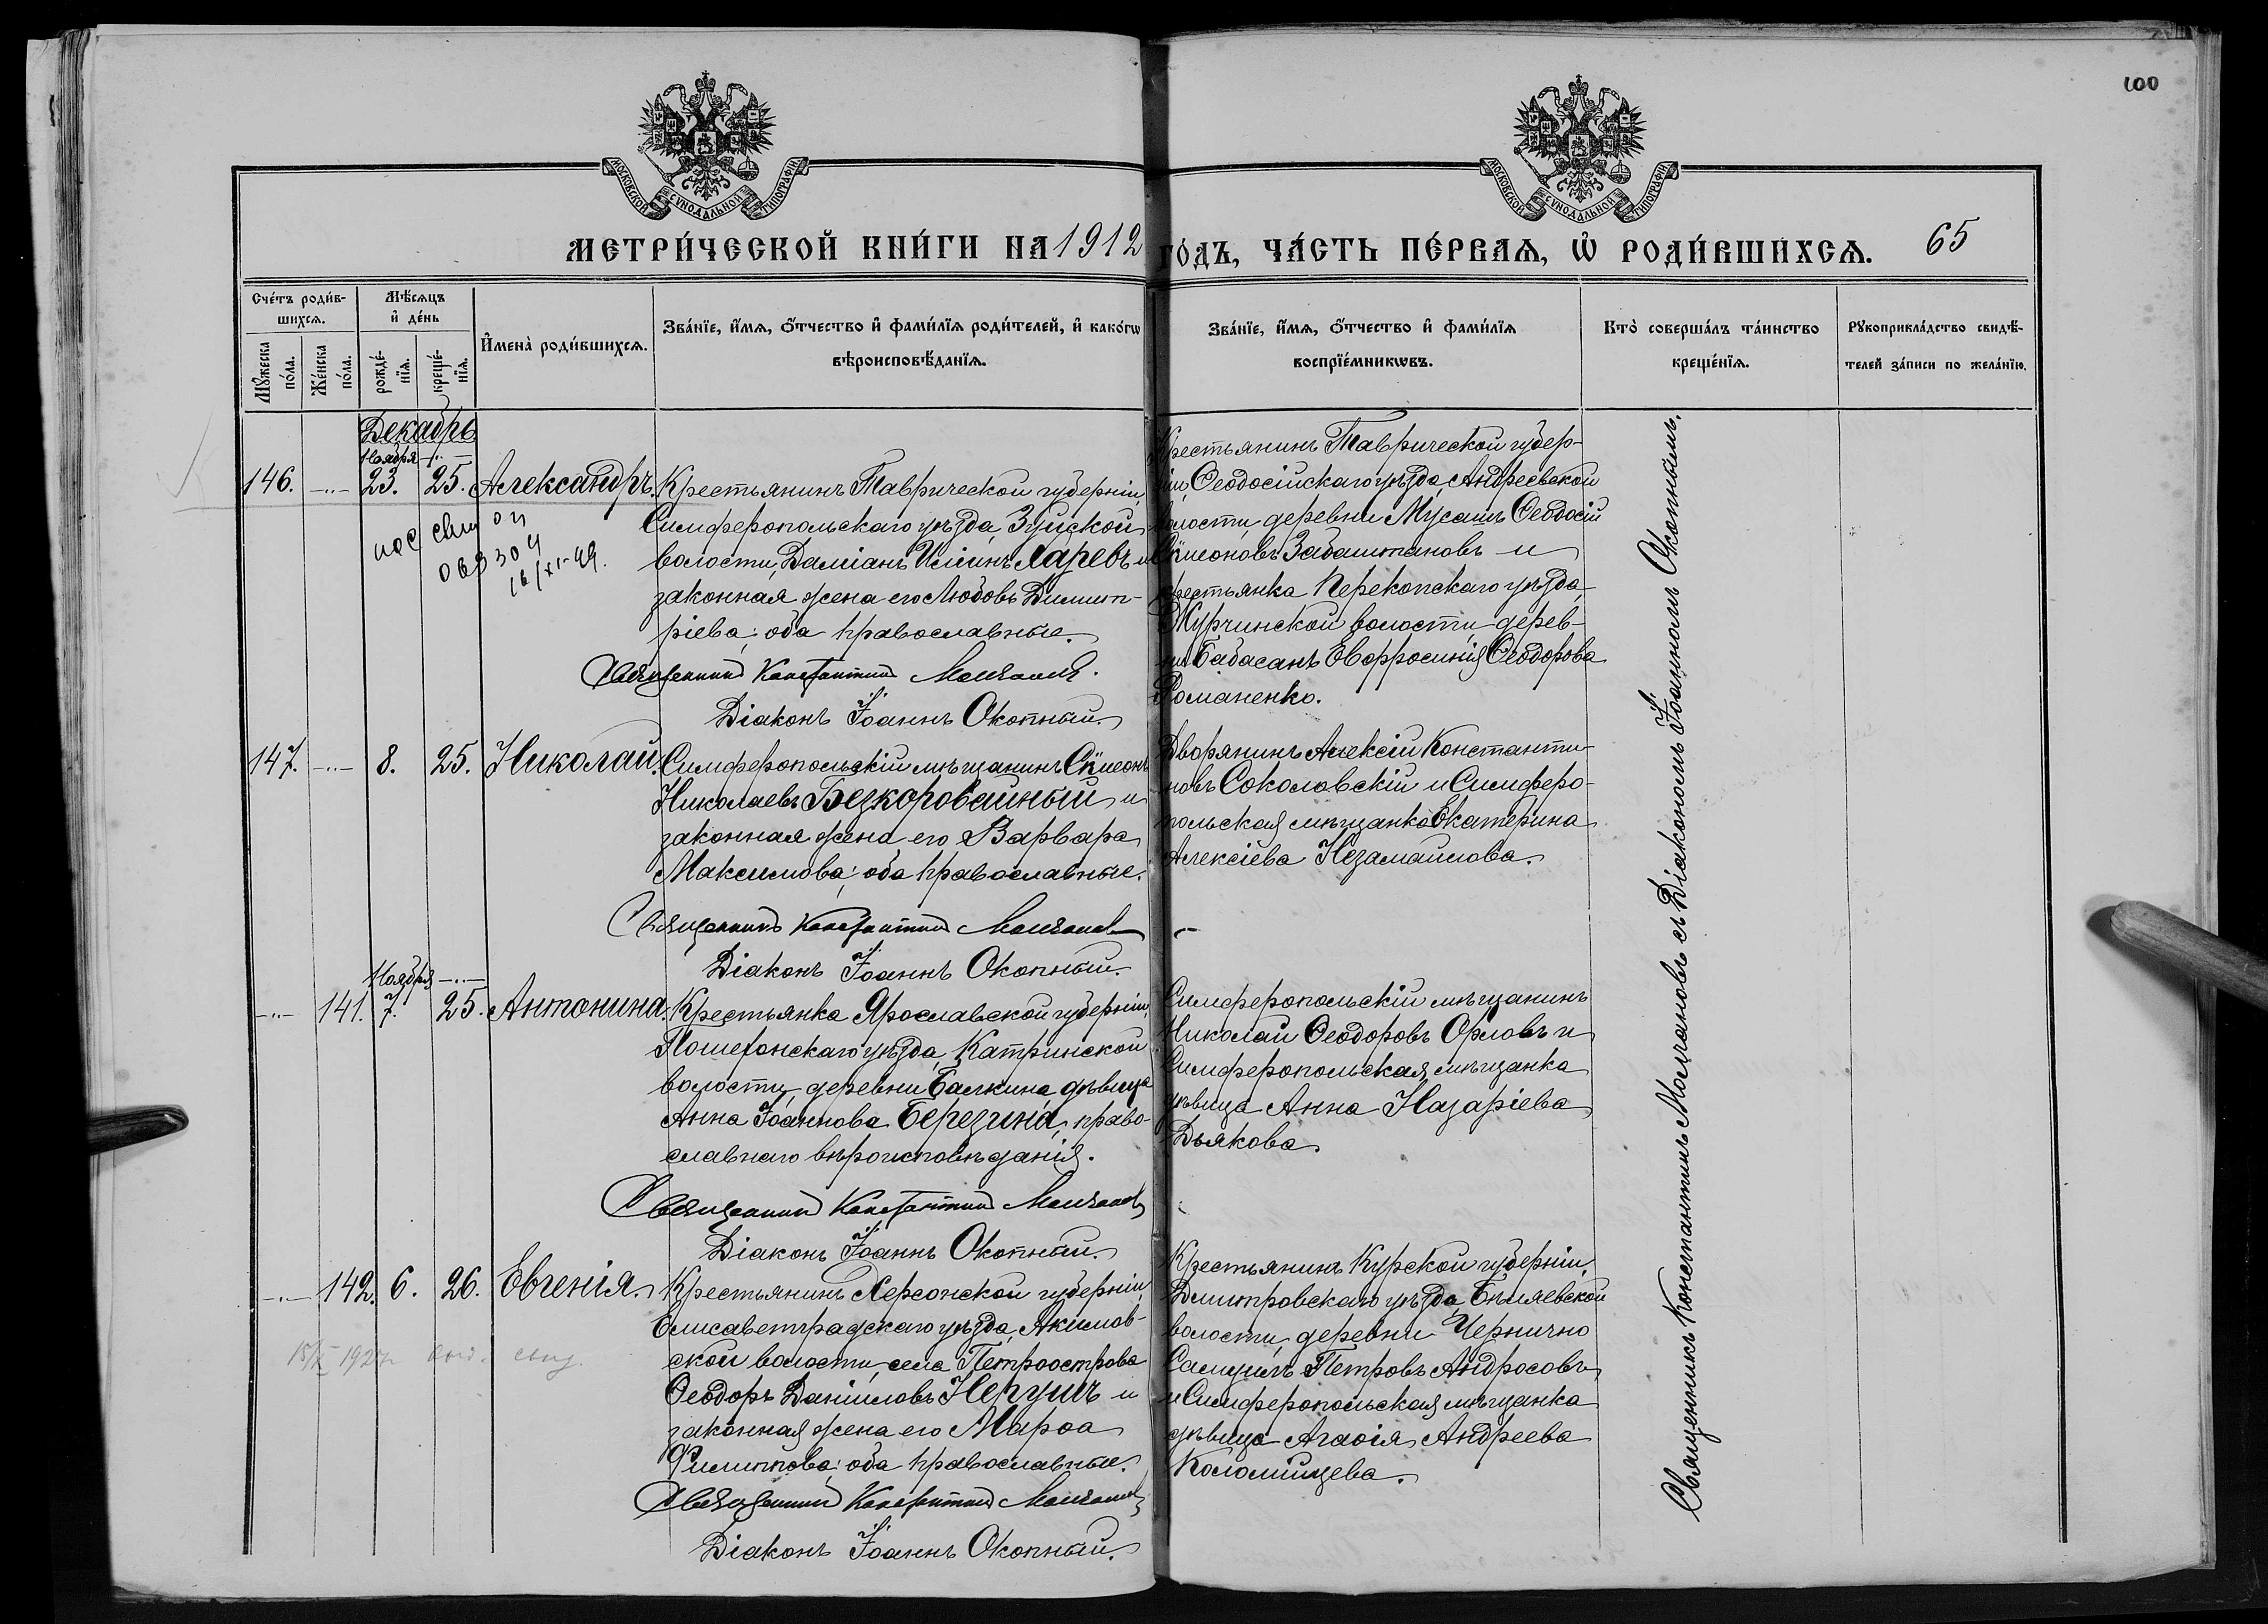 100
МОСКОВСКОЙ СѴНОДАЛЬНОЙ ТИПОГРАФІИ
МОСКОВСКОЙ СѴНОДАЛЬНОЙ ТИПОГРАФІИ
МЕТРИ́ЧЕСКОЙ КНИ́ГИ НА 1912 ГО́ДЪ, ЧА́СТЬ ПЕ́РВАЯ, Ѽ РОДИ́ВШИХСЯ. 65
Сче́тъ роди́в-
шихся.
Мꙋ́жеска по́ла.
Же́нска по́ла.
Мѣ́сяцъ
и҆ де́нь
рожде́-
нїѧ.
креще́-
нїѧ.
И҆мена̀ роди́вшихся.
Зва́нїе, и҆́мѧ, ѻ҆́тчество и҆ фами́лїѧ роди́телей, и҆ како́гѡ
вѣроисповѣ́данїѧ.
Зва́нїе, и҆́мѧ, ѻ҆́тчество и҆ фами́лїѧ
воспрїе́мникѡвъ.
Кто̀ соверша́лъ та́инство
креще́нїѧ.
Рꙋкоприкла́дство свидѣ́-
телей за́писи по жела́нїю.
Декабрь
Ноября
146. 23. 25. Александръ.
Крестьянинъ Таврической губерніи,
Симферопольскаго уѣзда, Зуйской
волости, Даміанъ Иліинъ Ларевъ и
законная жена его Любовь Димит-
ріева; оба православные.
Священникъ Константинъ Молчановъ.
Діаконъ Іоаннъ Окопный.
069304
16/XI-49.
Крестьянинъ Таврической губер-
ніи, Ѳеодосійскаго уѣзда, Андреевской
волости, деревни Мусашъ Ѳеодосій
Сѵмеоновъ Забаштановъ и
крестьянка Перекопскаго уѣзда,
Журчинской волости, дерев-
ни Бабасанъ Евфросинія Ѳеодорова
Романенко.
147. 8. 25. Николай.
Симферопольскій мѣщанинъ Сѵмеонъ
Николаевъ Безкоровайный и
законная жена его Варвара
Максимова; оба православные.
Священникъ Константинъ Молчановъ
Діаконъ Іоаннъ Окопный.
Дворянинъ Алексій Константи-
новъ Соколовскій и Симферо-
польская мѣщанка Екатерина
Алексіева Незамаилова.
Ноября
141. 7. 25. Антонина.
Крестьянка Ярославской губерніи,
Пошехонскаго уѣзда, Катринской
волости, деревни Балкина дѣвица
Анна Іоаннова Березина, право-
славнаго вѣроисповѣданія.
Священникъ Константинъ Молчановъ
Діаконъ Іоаннъ Окопный.
Симферопольскій мѣщанинъ
Николай Ѳеодоровъ Орловъ и
Симферопольская мѣщанка
дѣвица Анна Назаріева
Дьякова.
142. 6. 26. Евгенія.
Крестьянинъ Херсонской губерніи,
Елисаветградскаго уѣзда, Акимов-
ской волости, села Петроострова
Ѳеодоръ Даніиловъ Негушъ и
законная жена его Марѳа
Филиппова; оба православные.
Священникъ Константинъ Молчановъ
Діаконъ Іоаннъ Окопный.
Крестьянинъ Курской губерніи,
Дмитровскаго уѣзда, Бѣляевской
волости, деревни Чернично
Самуилъ Петровъ Андросовъ
и Симферопольская мѣщанка
дѣвица Агаѳія Андреева
Коломійцева.
Священникъ Константинъ Молчановъ съ Діакономъ Іоанномъ Окопнымъ.